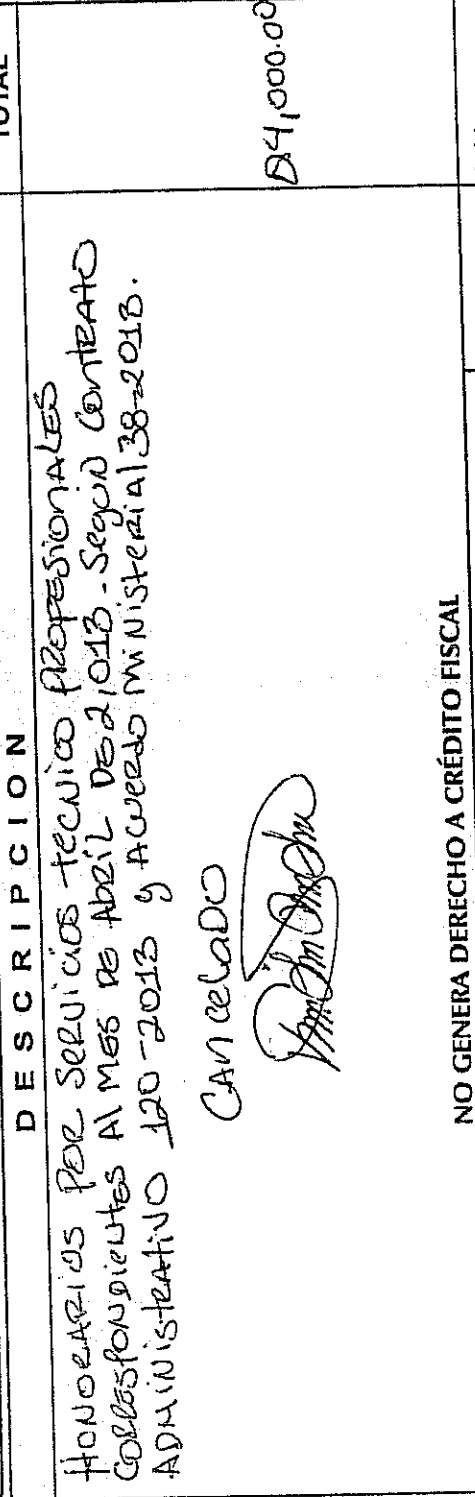 DESCRIPCION
TOTAL
HONORARIOS POR SERVICIOS TECNICO PROFESIONALES
CORRESPONDIENTES AL MES DE ABRIL DE 2,013. SEGÚN CONTRATO
ADMINISTRATIVO 120-2013 y ACUERDO MINISTERIAL 38-2013.
Q4,000.00
CANCELADO
NO GENERA DERECHO A CRÉDITO FISCAL